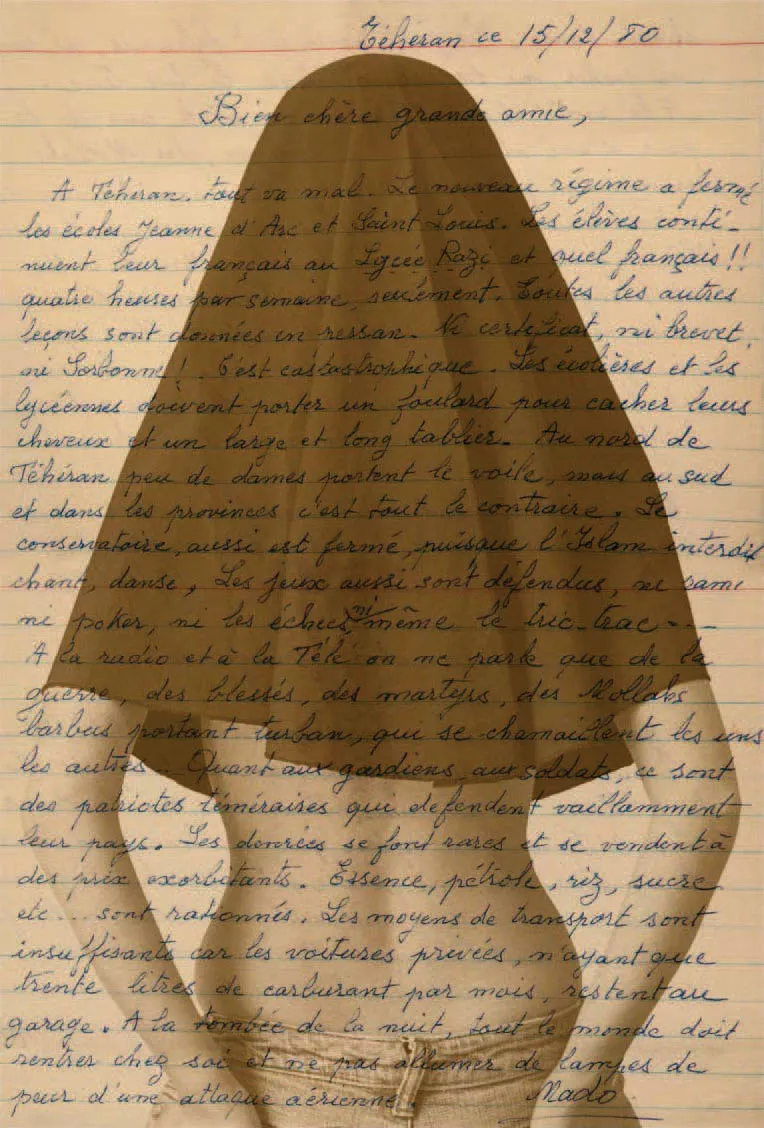 Téhéran ce 15/12/80
Bien chère grande amie,
A Téhéran. tout va mal. Le nouveau régime a fermé
les écoles Jeanne d'Arc et Saint Louis. Les élèves conti-
nuent leur français au Lycée Razi et quel français!!
quatre heures par semaine, seulement. Toutes les autres
leçons sont données en ressan. Ni certificat, ni brevet,
ni Sorbonne! C'est castastrophique. Les écolières et les
lycéennes doivent porter un foulard pour cacher leurs
cheveux et un large et long tablier. Au nord de
Téhéran peu de dames portent le voile, mais au sud
et dans les provinces c'est tout le contraire. Le
conservatoire, aussi est fermé, puisque l'Islam interdit
chant, danse, Les jeux aussi sont défendus, ni rami
ni poker, ni les échecs, ni même le tric-trac...
A la radio et à la Télé on ne parle que de la
guerre, des blessés, des martyrs, des Mollahs
barbus portant turban, qui se chamaillent les uns
les autres. Quant aux gardiens, aux soldats, ce sont
des patriotes téméraires qui defendent vaillamment
leur pays. Les denrées se font rares et se vendent à
des prix exorbitants. Essence, pétrole, riz, sucre,
etc... sont rationnés. Les moyens de transport sont
insuffisants car les voitures privées, n'ayant que
trente litres de carburant par mois, restent au
garage. A la tombée de la nuit, tout le monde doit
rentrer chez soi et ne pas allumer de lampes de
peur d'une attaque aérienne. Mado